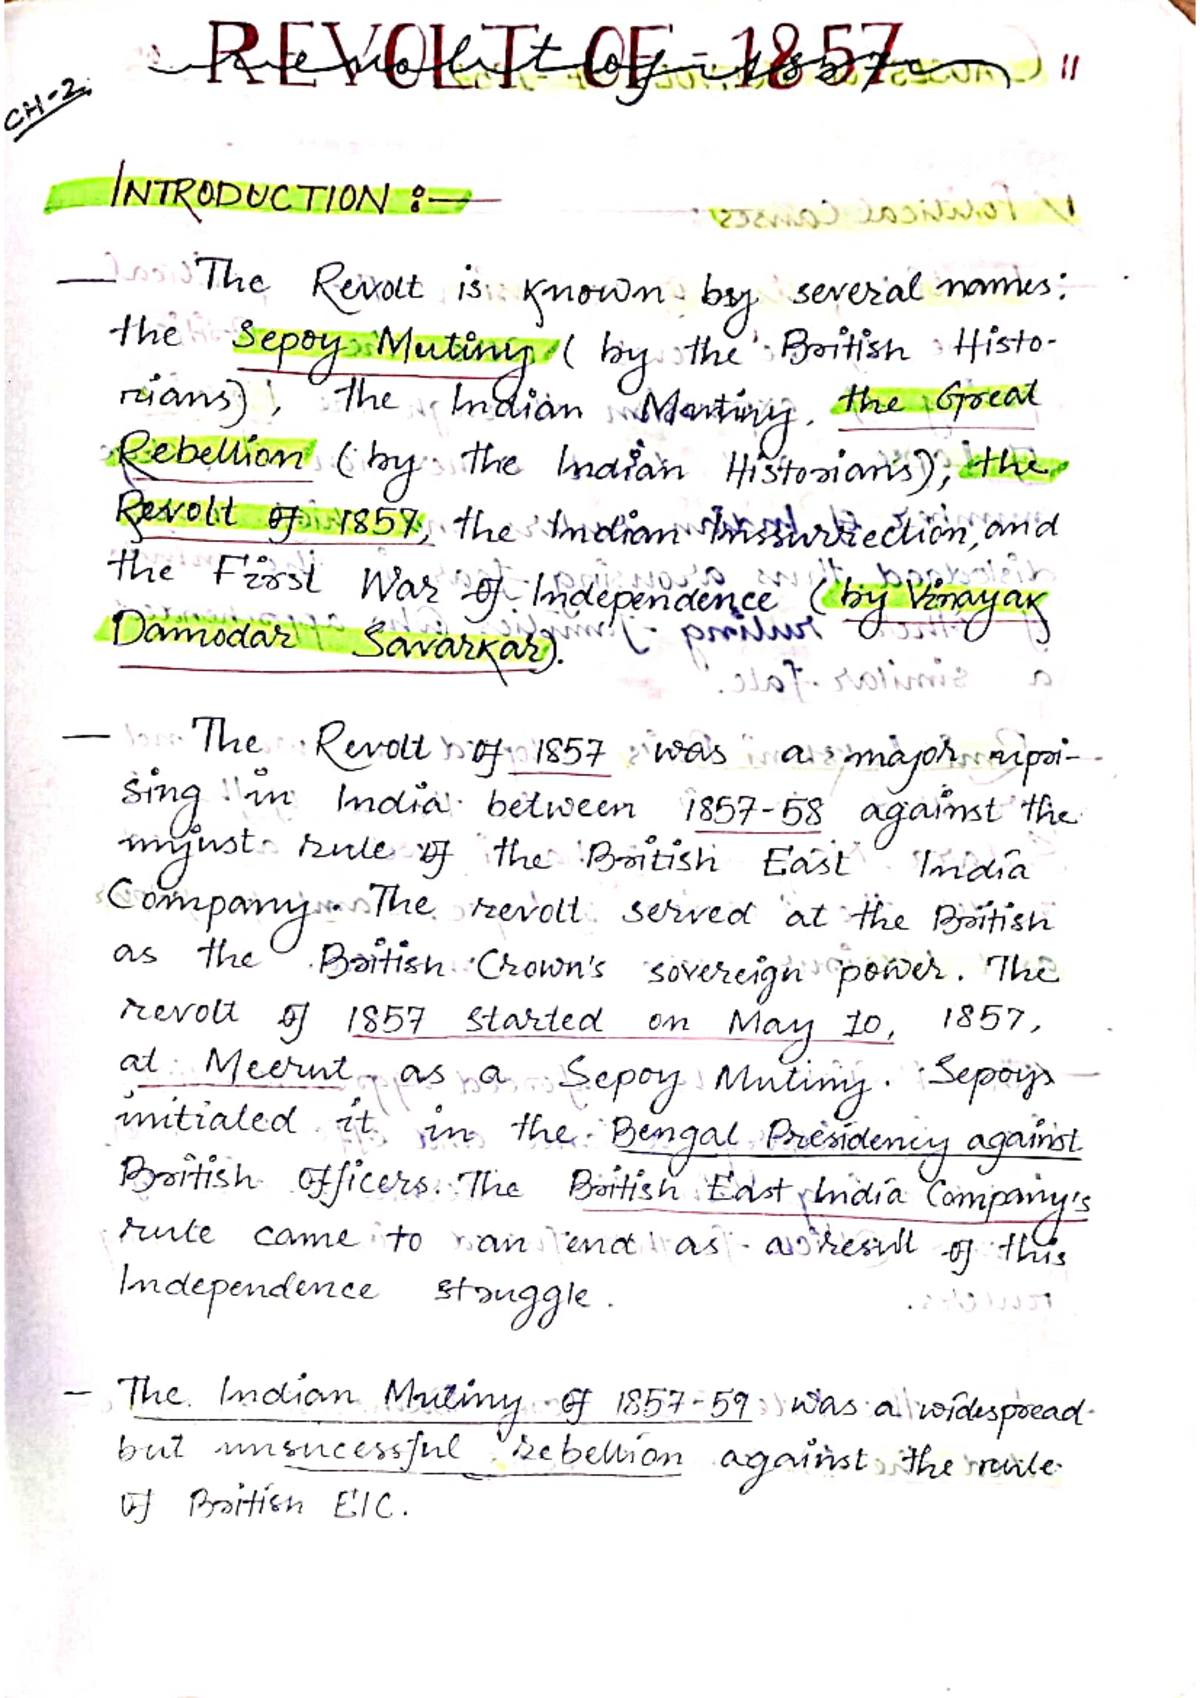 REVOLT OF - 1857
Revolt of - 1857
11
CH-2
INTRODUCTION :-
— The Revolt is known by several names:
the Sepoy Mutiny ( by the British Histo-
rians), the Indian Mutiny, the Great
Rebellion ( by the Indian Historians), the
Revolt of 1857, the Indian Inssurrection, and
the First War of Independence ( by Vinayak
Damodar Savarkar).
— The Revolt of 1857 was a major upri-
sing in India between 1857-58 against the
unjust rule of the British East India
Company. The revolt served at the British
as the British Crown's sovereign power. The
revolt of 1857 started on May 10, 1857,
at Meerut as a Sepoy Mutiny. Sepoys
initialed it in the Bengal Presidency against
British officers. The British East India Company's
rule came to an end as a result of this
Independence struggle.
— The Indian Mutiny of 1857-59 was a widespread
but unsucessful rebellion against the rule
of British EIC.